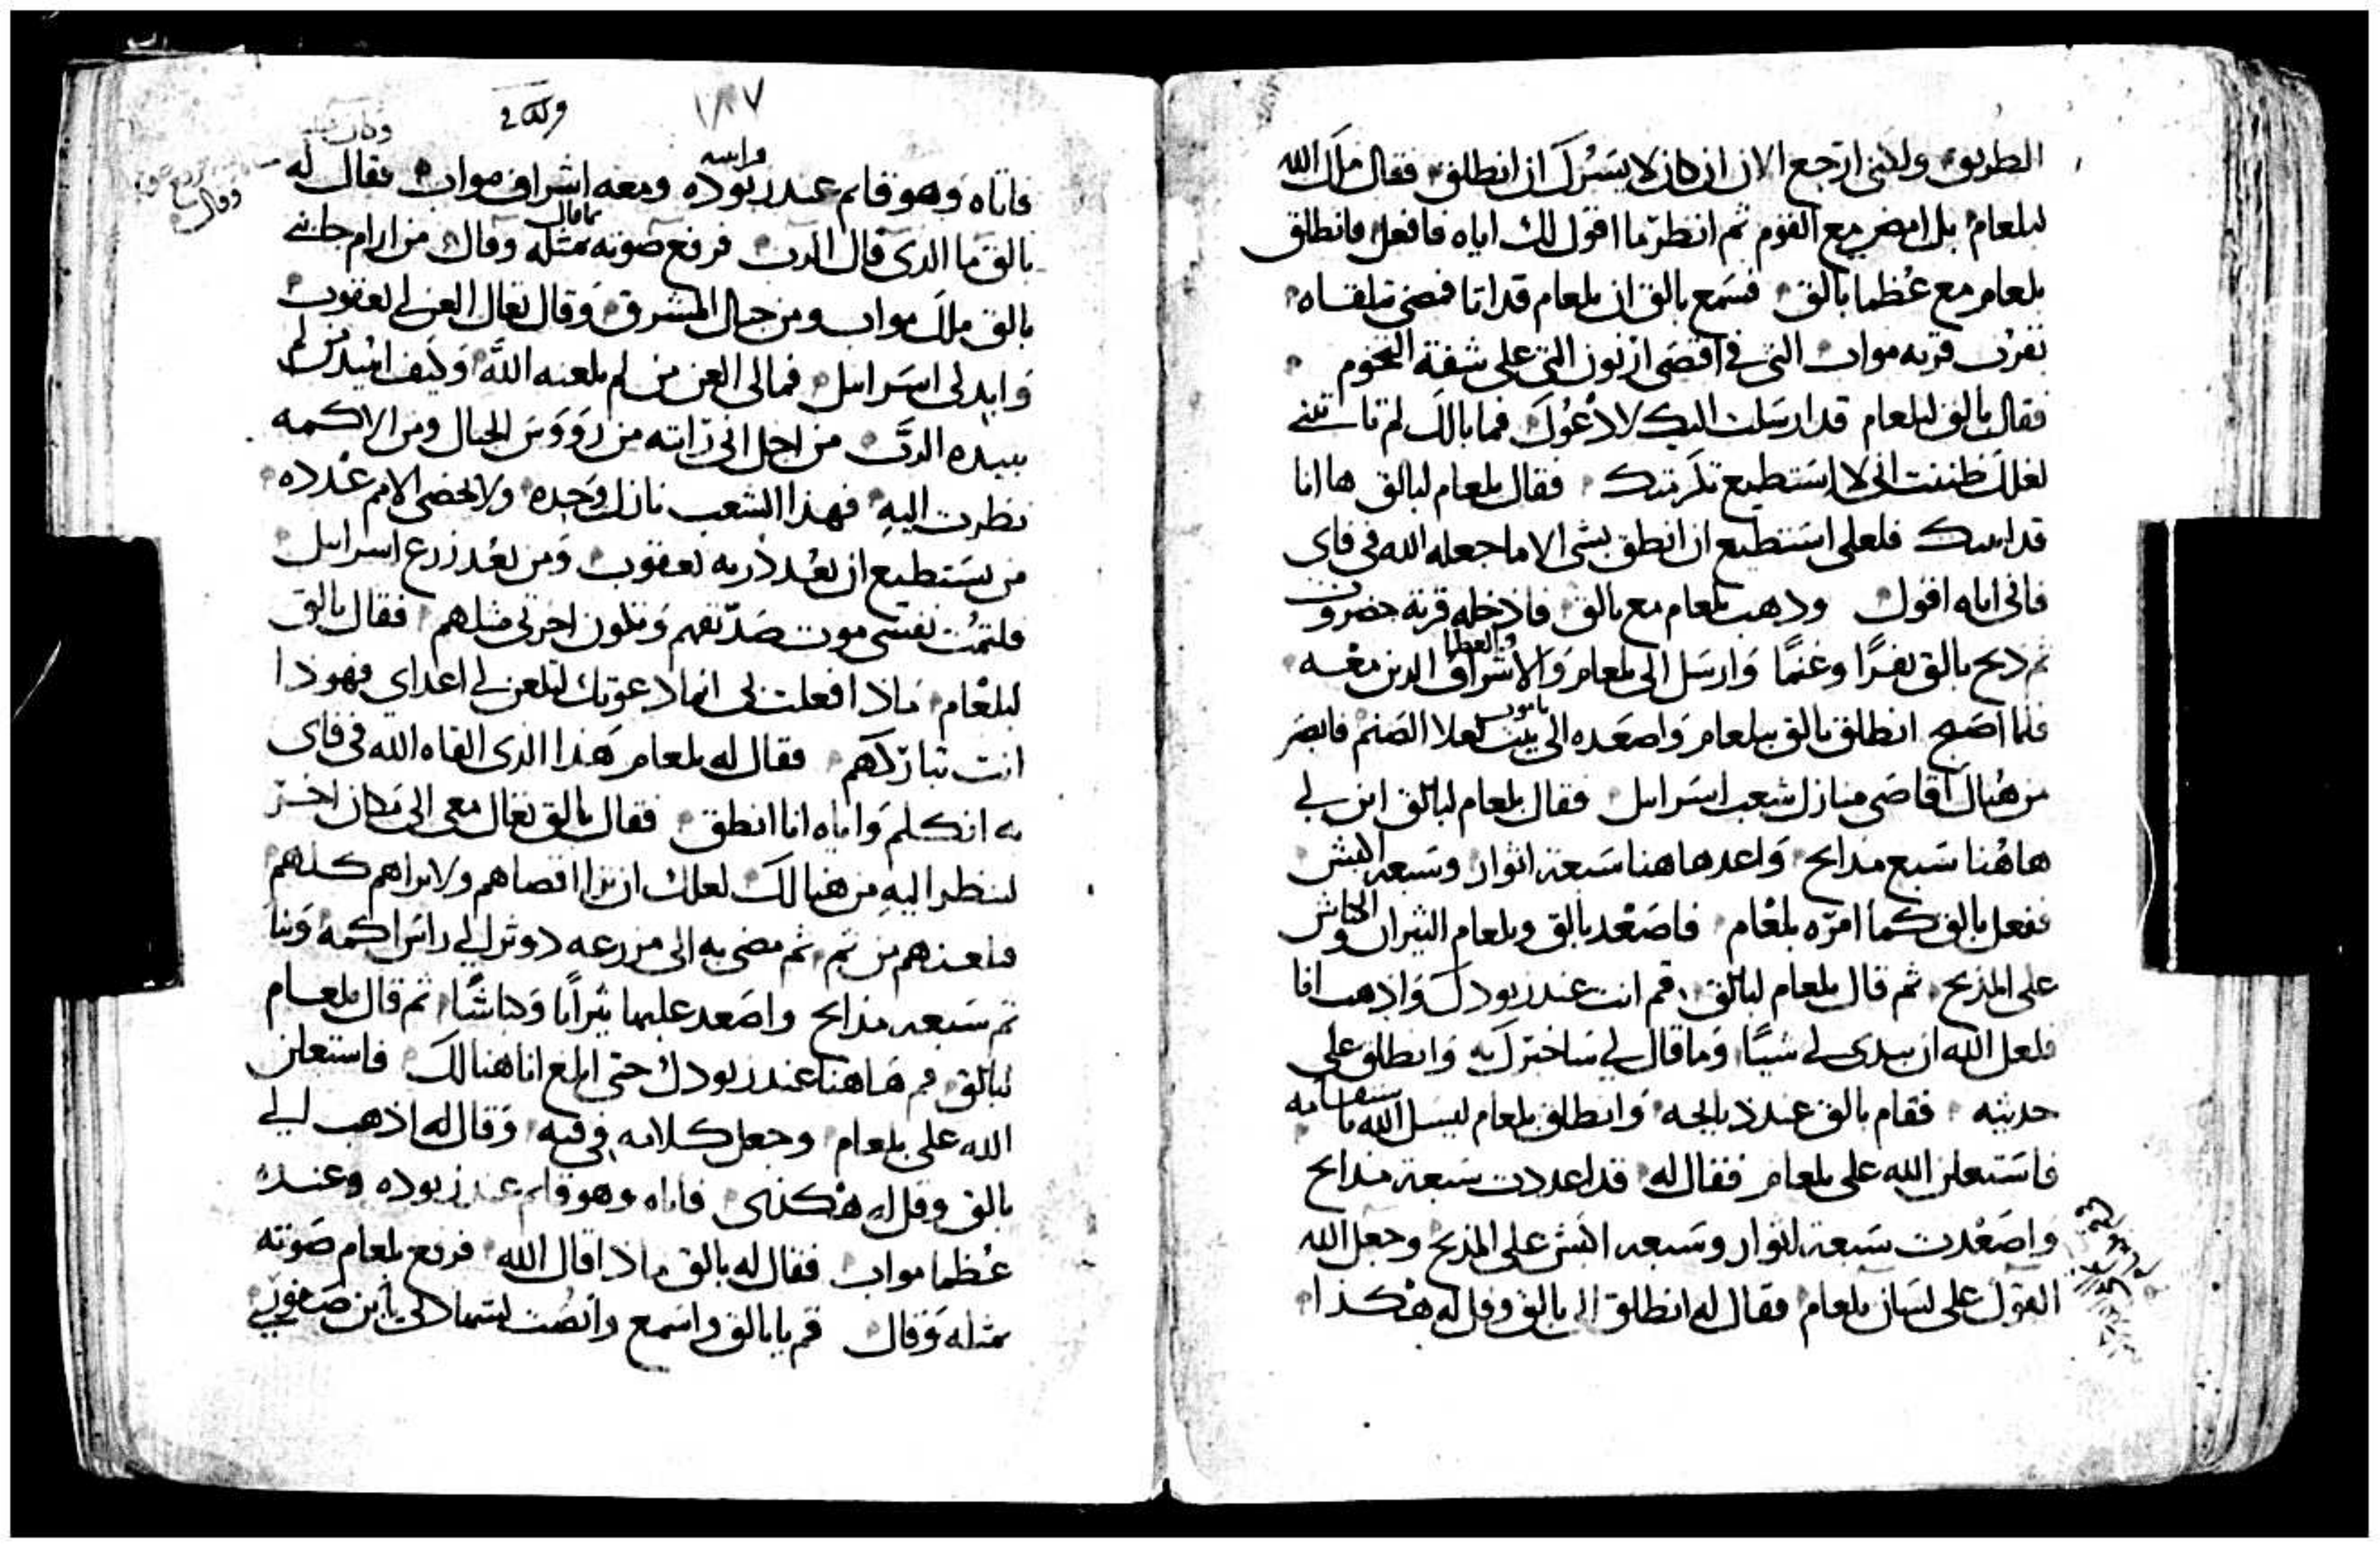 الطريق ولكني ارجع الان ان كان لا يسرك ان انطلق فقال ملاك الله
لبلعام بل امض مع القوم ثم انظر ما اقول لك اياه فافعل فانطلق
بلعام مع عظما بالق فسمع بالق ان بلعام قد اتا فمضى تلقاه
بقرب قرية مواب التي في اقصى ارنون التي على شفة التخوم
فقال بالق لبلعام قد ارسلت اليك لادعوك فما بالك لم تاتني
لعلك ظننت اني لا استطيع تكرمتك فقال بلعام لبالق ها انا
قد اتيتك فلعلي استطيع ان انطق بشي الا ما جعله الله في فاي
فاني اياه اقول وذهب بلعام مع بالق فادخله قرية حضروت
ثم ذبح بالق بقرًا وغنمًا وارسل الى بلعام والاشراف الذين معه
والعظما
فلما اصبح انطلق بالق ببلعام واصعده الى بيت بعلا الصنم فابصر
باموت
من هناك اقاصي منازل شعب اسرايل فقال بلعام لبالق ابن لي
هاهنا سبع مذابح واعد هاهنا سبعة اثوار وسبعة اكبش
ففعل بالق كما امره بلعام فاصعد بالق وبلعام الثيران والكباش
على المذبح ثم قال بلعام لبالق قم انت عند زبودك واذهب انا
فلعل الله ان يبدي لي شيًا وما قال لي ساخبرك به وانطلق على
حديثه فقام بالق عند ذبايحه وانطلق بلعام ليسل الله ما
فاستعلن الله على بلعام فقال له قد اعددت سبعة مذابح
واصعدت سبعة اثوار وسبعة اكبش على المذبح وجعل الله
القول على لسان بلعام فقال له انطلق الى بالق وقل له هكذا
١٨٧
فاتاه وهو قايم عند زبوده ومعه اشراف مواب فقال له
بالق ما الذي قال الرب فرفع صوته بمثله وقال من ارام جابني
بالق ملك مواب ومن جبال المشرق وقال تعال العن لي يعقوب
وابد لي اسرايل فمالي العن من لم يلعنه الله وكيف ابيد من لم
يبيده الرب من اجل اني رايته من رووس الجبال ومن الاكمه
نظرت اليه فهذا الشعب نازل وحده ولا تحصى الامم عدده
من يستطيع ان يعد ذرية يعقوب ومن يعد زرع اسرايل
فلتمت نفسي موت صديقهم وتكون اخرتي مثلهم فقال بالق
لبلعام ماذا فعلت بي انما دعوتك لتلعن لي اعداي فهوذا
انت تباركهم فقال له بلعام هذا الذي القاه الله في فاي
به اتكلم واياه انا انطق فقال بالق تعال معي الى مكان اخر
لننظر اليه من هنالك لعلك ان ترا اقصاهم ولا تراهم كلهم
فلعنهم من ثم ثم مضى به الى مزرعة دوثر الي راس اكمه وبنا
ثم سبعة مذابح واصعد عليها ثيرانًا وكباشًا ثم قال بلعام
لبالق قم هاهنا عند زبودك حتى ابلغ انا هنالك فاستعلن
الله على بلعام وجعل كلامه في فيه وقال له اذهب الي
بالق وقل له هكذى فاتاه وهو قايم عند زبوده وعنده
عظما مواب فقال له بالق ماذا قال الله فرفع بلعام صوته
بمثله وقال قم يا بالق واسمع وانصت لشهادتي يا بن صفور